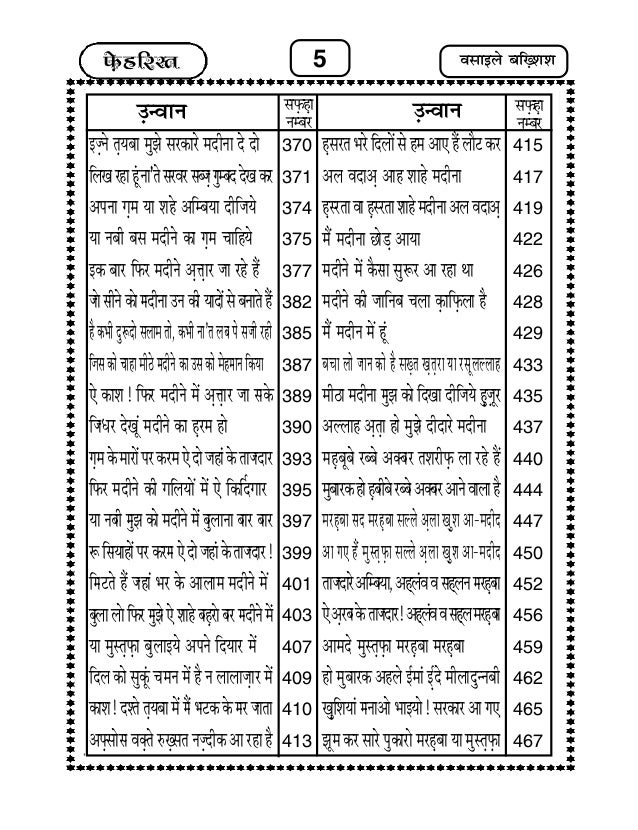 फ़ेहरिस्त 5 वसाइले बख़्शिश
उ़न्वान सफ़ह़ा नम्बर उ़न्वान सफ़ह़ा नम्बर
इज़्ने त़यबा मुझे सरकारे मदीना दे दो 370 ह़सरत भरे दिलों से हम आए हैं लौट कर 415
लिख रहा हूं ना'ते सरवर सब्ज़ गुम्बद देख कर 371 अल वदाअ़ आह शाहे मदीना 417
अपना ग़म या शहे अम्बिया दीजिये 374 ह़स्रता वा ह़स्रता शाहे मदीना अल वदाअ़ 419
या नबी बस मदीने का ग़म चाहिये 375 मैं मदीना छोड़ आया 422
इक बार फिर मदीने अ़त्त़ार जा रहे हैं 377 मदीने में कैसा सुरूर आ रहा था 426
जो सीने को मदीना उन की यादों से बनाते हैं 382 मदीने की जानिब चला क़ाफ़िला है 428
है कभी दुरूदो सलाम तो, कभी ना'त लब पे सजी रही 385 मैं मदीन में हूं 429
जिस को चाहा मीठे मदीने का उस को मेहमान किया 387 बचा लो जान को है सख़्त ख़त़रा या रसूलल्लाह 433
ऐ काश ! फिर मदीने में अ़त्त़ार जा सके 389 मीठा मदीना मुझ को दिखा दीजिये हुज़ूर 435
जिधर देखूं मदीने का ह़रम हो 390 अल्लाह अ़त़ा हो मुझे दीदारे मदीना 437
ग़म के मारों पर करम ऐ दो जहां के ताजदार 393 महबूबे रब्बे अक्बर तशरीफ़ ला रहे हैं 440
फिर मदीने की गलियों में ऐ किर्दिगार 395 मुबारक हो ह़बीबे रब्बे अक्बर आने वाला है 444
या नबी मुझ को मदीने में बुलाना बार बार 397 मरह़बा सद मरह़बा सल्ले अ़ला ख़ुश आ-मदीद 447
रू सियाहों पर करम ऐ दो जहां के ताजदार ! 399 आ गए हैं मुस्त़फ़ा सल्ले अ़ला ख़ुश आ-मदीद 450
मिटते हैं जहां भर के आलाम मदीने में 401 ताजदारे अम्बिया, अह्लंव व सह्लन मरह़बा 452
बुला लो फिर मुझे ऐ शाहे बह़रो बर मदीने में 403 ऐ अ़रब के ताजदार! अह्लंव व सह्ल मरह़बा 456
या मुस्त़फ़ा बुलाइये अपने दियार में 407 आमदे मुस्त़फ़ा मरह़बा मरह़बा 459
दिल को सुकूं चमन में है न लालाज़ार में 409 हो मुबारक अहले ईमां ई़दे मीलादुन्नबी 462
काश ! दश्ते त़यबा में मैं भटक के मर जाता 410 ख़ुशियां मनाओ भाइयो ! सरकार आ गए 465
अफ़्सोस वक़्ते रुख़्सत नज़्दीक आ रहा है 413 झूम कर सारे पुकारो मरह़बा या मुस्त़फ़ा 467